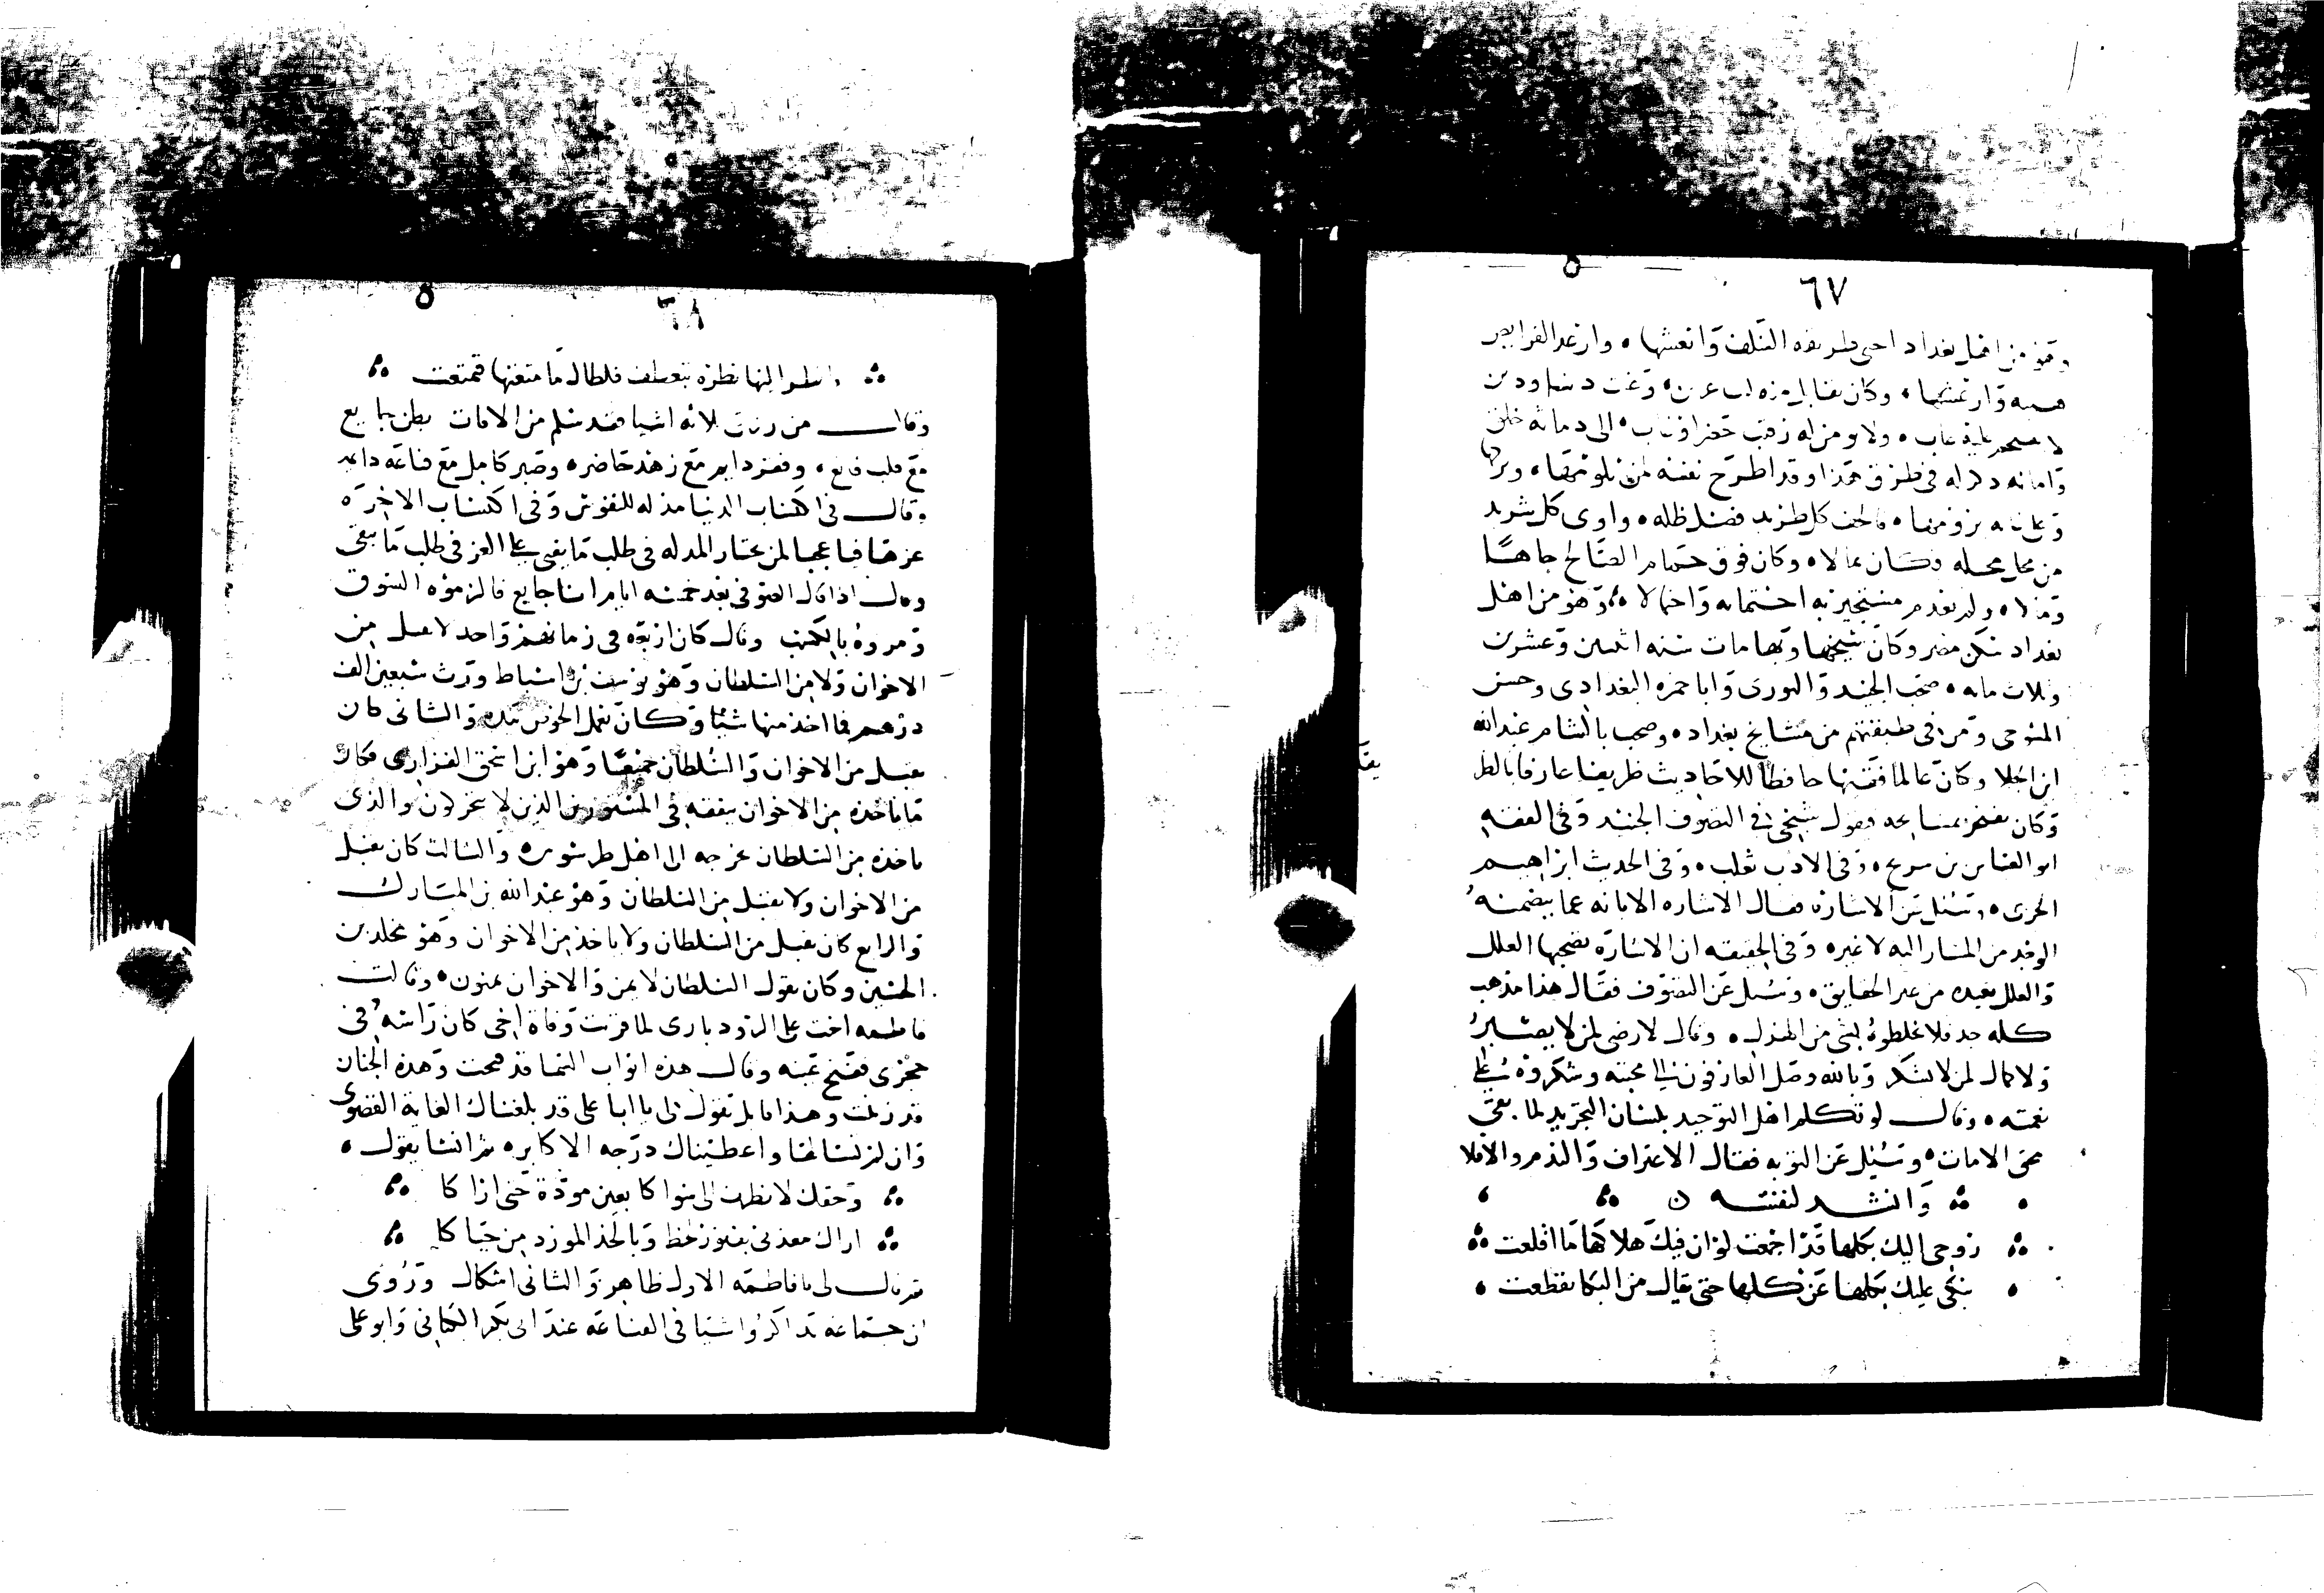 ٦٧
وهو من اهل بغداد احيى طريقه السلف وانعشها ه وارعد الفرايص
هيبه وارعشها ه وكان
ولا ومن اله ذهب
وامانه في طرق هذا وقد اطرح نفسه
كل طريد فضل ظله ه واوى كل شريد
من محله وكان وكان فوق حمام الصالح جاها
ومالا ه ولم يعدم مستجير به ه وهو من اهل
بغداد سكن مصر وكان شيخها وبها مات سنه اثنين وعشرين
وثلاث مايه ه صحب الجنيد والنورى وابا حمزه البغدادى وحسن
المسوحى ومن فى طبقتهم من مشايخ بغداد ه وصحب بالشام عبد الله
ابن الجلا وكان عالما فقيها حافظا للاحاديث ظريفا عارفا بالطر
وكان يفتخر بمشايخه ويقول شيخى فى التصوف الجنيد وفى الفقه
ابو العباس بن سريج ه وفى الادب ثعلب ه وفى الحديث ابراهيم
الحربى ه وسئل عن الاشاره فقال الاشاره الابانه عما يتضمنه
الوجد من المشار اليه لا غيره وفى الحقيقه ان الاشاره تصحبها العلل
والعلل بعيده من عين الحقايق ه وسئل عن التصوف فقال هذا مذهب
كله جد فلا تخلطوه بشى من الهزل ه وقال لا رضى لمن لا يصبر
ولا كمال لمن لا يشكر وبالله وصل العارفون الى محبته وشكروه على
نعمته ه وقال لو تكلم اهل التوحيد بلسان التجريد لما بقى
محق الا مات ه وسئل عن التوبه فقال الاعتراف والندم والاقلا
وانشد لنفسه
روحى اليك بكلها قد اجمعت لو ان فيك هلاكها ما اقلعت
تبكى عليك بكلها عن كلها حتى يقال من البكا تقطعت
٦٨
انظر اليها نظره بتعطف فلطال ما متعتها فتمتعت
وقال من رزق ثلاثه اشيا فقد سلم من الافات بطن جايع
مع قلب قانع ه وفقر دايم مع زهد حاضر ه وصبر كامل مع قناعه دايمه
وقال فى اكتساب الدنيا مذله للنفوس وفى اكتساب الاخره
عزها فيا عجبا لمن يختار المذله فى طلب ما يفنى على العز فى طلب ما يبقى
وقال اذا قال الصوفى بعد خمسه ايام انا جايع فالزموه السوق
ومروه بالكسب وقال كان اربعه فى زمانهم واحد لا يقبل من
الاخوان ولا من السلطان وهو يوسف بن اسباط ورث سبعين الف
درهم فما اخذ منها شيئا وكان يعمل الخوص بيده والثانى كان
يقبل من الاخوان والسلطان جميعا وهو ابو اسحق الفزارى فكان
ما ياخذه من الاخوان ينفقه فى المستورين الذين لا يتحركون والذى
ياخذه من السلطان يخرجه الى اهل طرسوس ه والثالث كان يقبل
من الاخوان ولا يقبل من السلطان وهو عبد الله بن المبارك
والرابع كان يقبل من السلطان ولا ياخذ من الاخوان وهو مخلد بن
الحسين وكان يقول السلطان لا يمن والاخوان يمنون ه وقالت
فاطمه اخت على الروذبارى لما قربت وفاة اخى كان راسه فى
حجرى ففتح عينه وقال هذه ابواب السما قد فتحت وهذه الجنان
قد زينت وهذا قايل يقول لى يا ابا على قد بلغناك الغايه القصوى
وان لم تسالها واعطيناك درجه الاكابر ه ثم انشا يقول ه
وحقك لا نظرت الى سواكا بعين مودة حتى اراكا
اراك معذبى بفتور لحظ وبالخد المورد من حياكا
ثم قال لى يا فاطمه الاول ظاهر والثانى اشكال وروى
ان جماعه تذاكروا شيا فى القناعه عند ابى بكر الكتانى وابو على